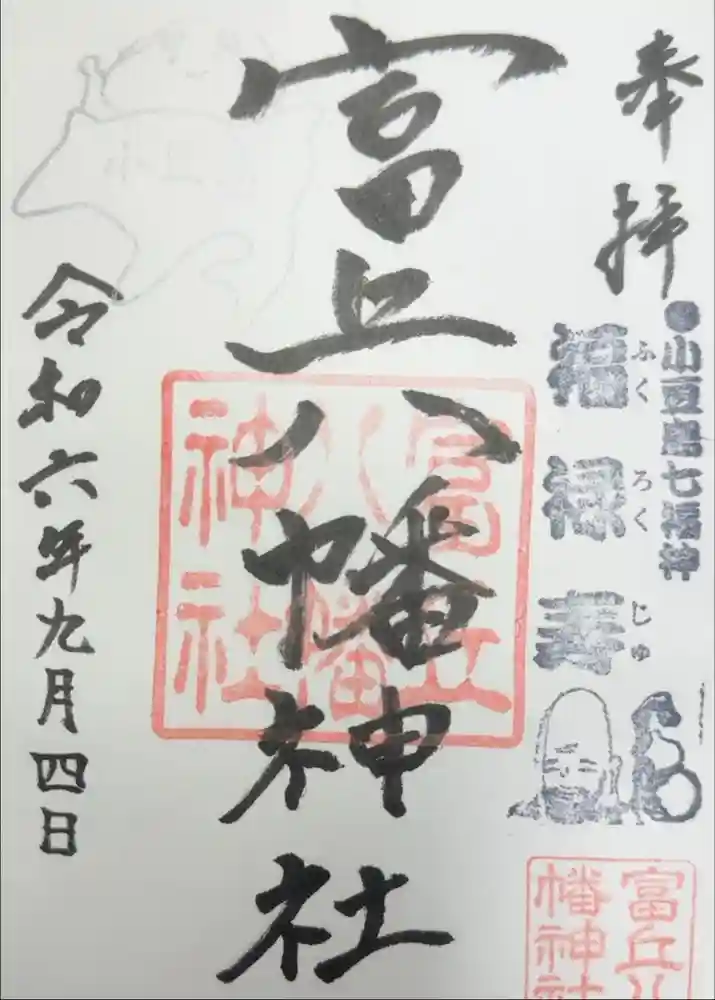 奉拝
●小豆島七福神
福禄寿
ふくろくじゅ
富丘八幡神社
富丘
八幡
神社
令和六年九月四日
富丘八
幡神社